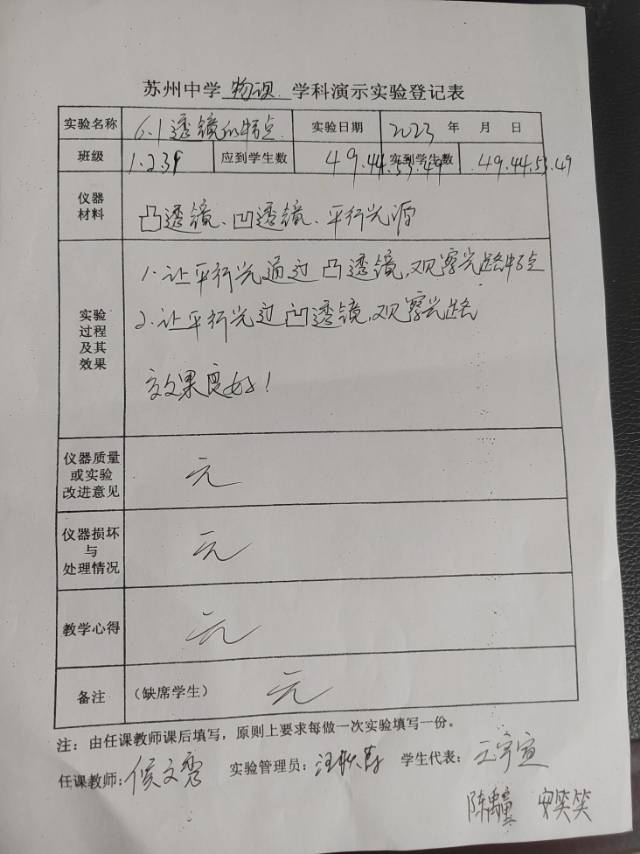 苏州中学 物理 学科演示实验登记表
实验名称 6.1透镜的特点 实验日期 2023 年 月 日
班级 1.2.39 应到学生数 49.44.53.49 实到学生数 49.44.53.49
仪器材料 凸透镜、凹透镜、平行光源
实验过程及其效果 1.让平行光通过凸透镜,观察光路特点
2.让平行光过凹透镜,观察光路
效果良好!
仪器质量或实验改进意见 无
仪器损坏与处理情况 无
教学心得 无
备注 (缺席学生) 无
注:由任课教师课后填写,原则上要求每做一次实验填写一份。
任课教师:侯文秀 实验管理员: 学生代表:王宇宣
陈 安笑笑